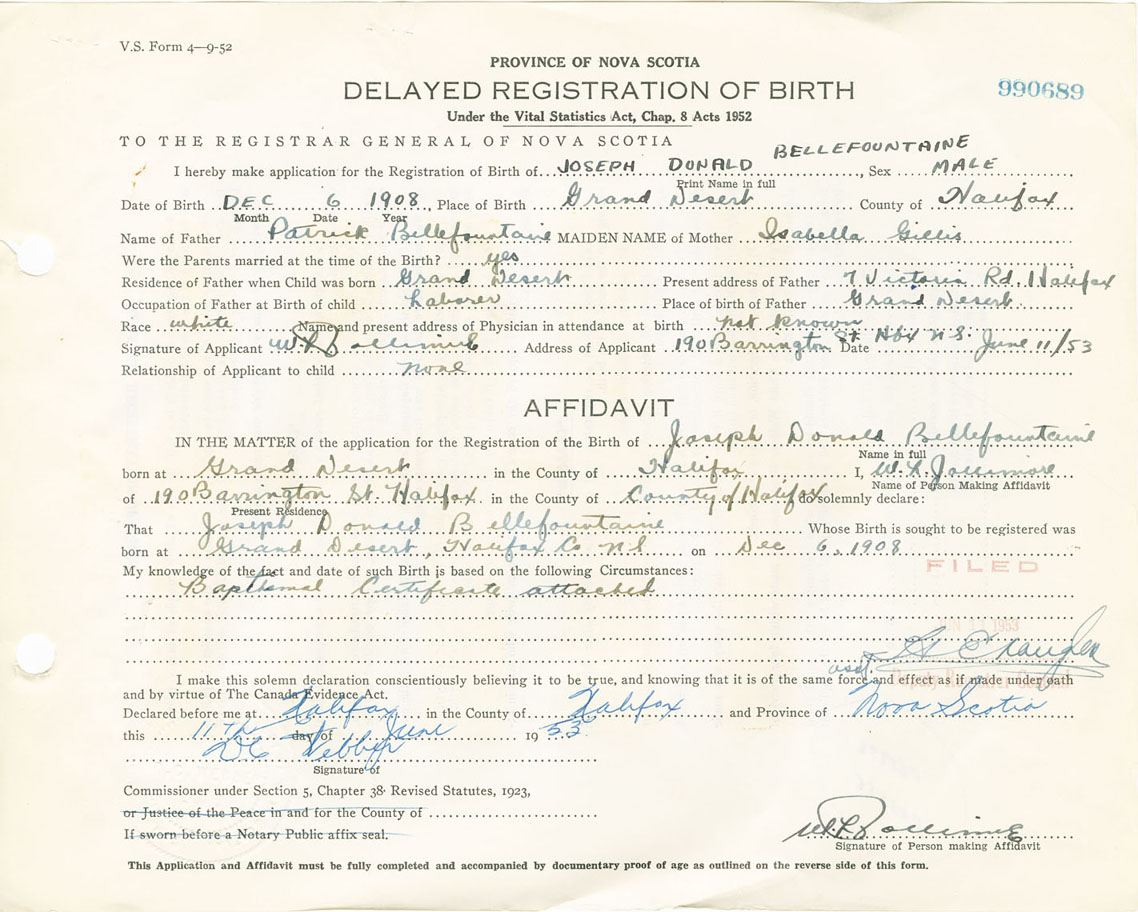 V.S. Form 4—9-52
PROVINCE OF NOVA SCOTIA
DELAYED REGISTRATION OF BIRTH
990689
Under the Vital Statistics Act, Chap. 8 Acts 1952
TO THE REGISTRAR GENERAL OF NOVA SCOTIA
I hereby make application for the Registration of Birth of JOSEPH DONALD BELLEFOUNTAINE, Sex MALE
Print Name in full
Date of Birth DEC 6 1908, Place of Birth Grand Desert County of Halifax
Month Date Year
Name of Father Patrick Bellefountaine MAIDEN NAME of Mother Isabella Gillis
Were the Parents married at the time of the Birth? yes
Residence of Father when Child was born Grand Desert Present address of Father 7 Victoria Rd. Halifax
Occupation of Father at Birth of child Laborer Place of birth of Father Grand Desert
Race white Name and present address of Physician in attendance at birth not known
Signature of Applicant W.L. Address of Applicant 190 Barrington St. Hfx N.S. Date June 11/53
Relationship of Applicant to child none
AFFIDAVIT
IN THE MATTER of the application for the Registration of the Birth of Joseph Donald Bellefountaine
Name in full
born at Grand Desert in the County of Halifax I, W. L. Jollimore
Name of Person Making Affidavit
of 190 Barrington St. Halifax in the County of County of Halifax do solemnly declare:
Present Residence
That Joseph Donald Bellefountaine Whose Birth is sought to be registered was
born at Grand Desert, Halifax Co. N.S on Dec 6, 1908
FILED
My knowledge of the fact and date of such Birth is based on the following Circumstances:
Baptismal Certificate attached
1953
asst.
I make this solemn declaration conscientiously believing it to be true, and knowing that it is of the same force and effect as if made under oath
and by virtue of The Canada Evidence Act.
Declared before me at Halifax in the County of Halifax and Province of Nova Scotia
this 11th day of June 1953
Signature of
Commissioner under Section 5, Chapter 38 Revised Statutes, 1923,
or Justice of the Peace in and for the County of
If sworn before a Notary Public affix seal.
Signature of Person making Affidavit
This Application and Affidavit must be fully completed and accompanied by documentary proof of age as outlined on the reverse side of this form.